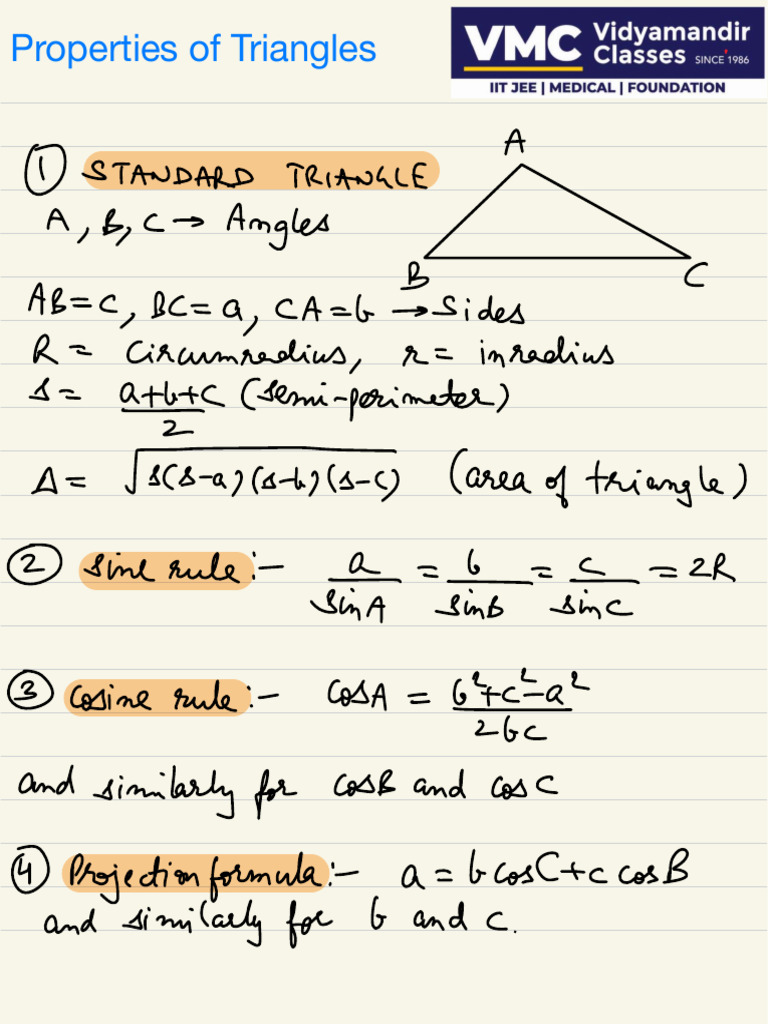 Properties of Triangles
VMC Vidyamandir Classes SINCE 1986
IIT JEE | MEDICAL | FOUNDATION
① STANDARD TRIANGLE
A, B, C → Angles
A
B C
AB = c, BC = a, CA = b → Sides
R = circumradius, r = inradius
s = (a+b+c)/2 (semi-perimeter)
Δ = √(s(s-a)(s-b)(s-c)) (area of triangle)
② sine rule :- a/sinA = b/sinB = c/sinC = 2R
③ cosine rule :- cosA = (b²+c²-a²)/2bc
and similarly for cosB and cosC
④ Projection formula :- a = b cosC + c cosB
and similarly for b and c.